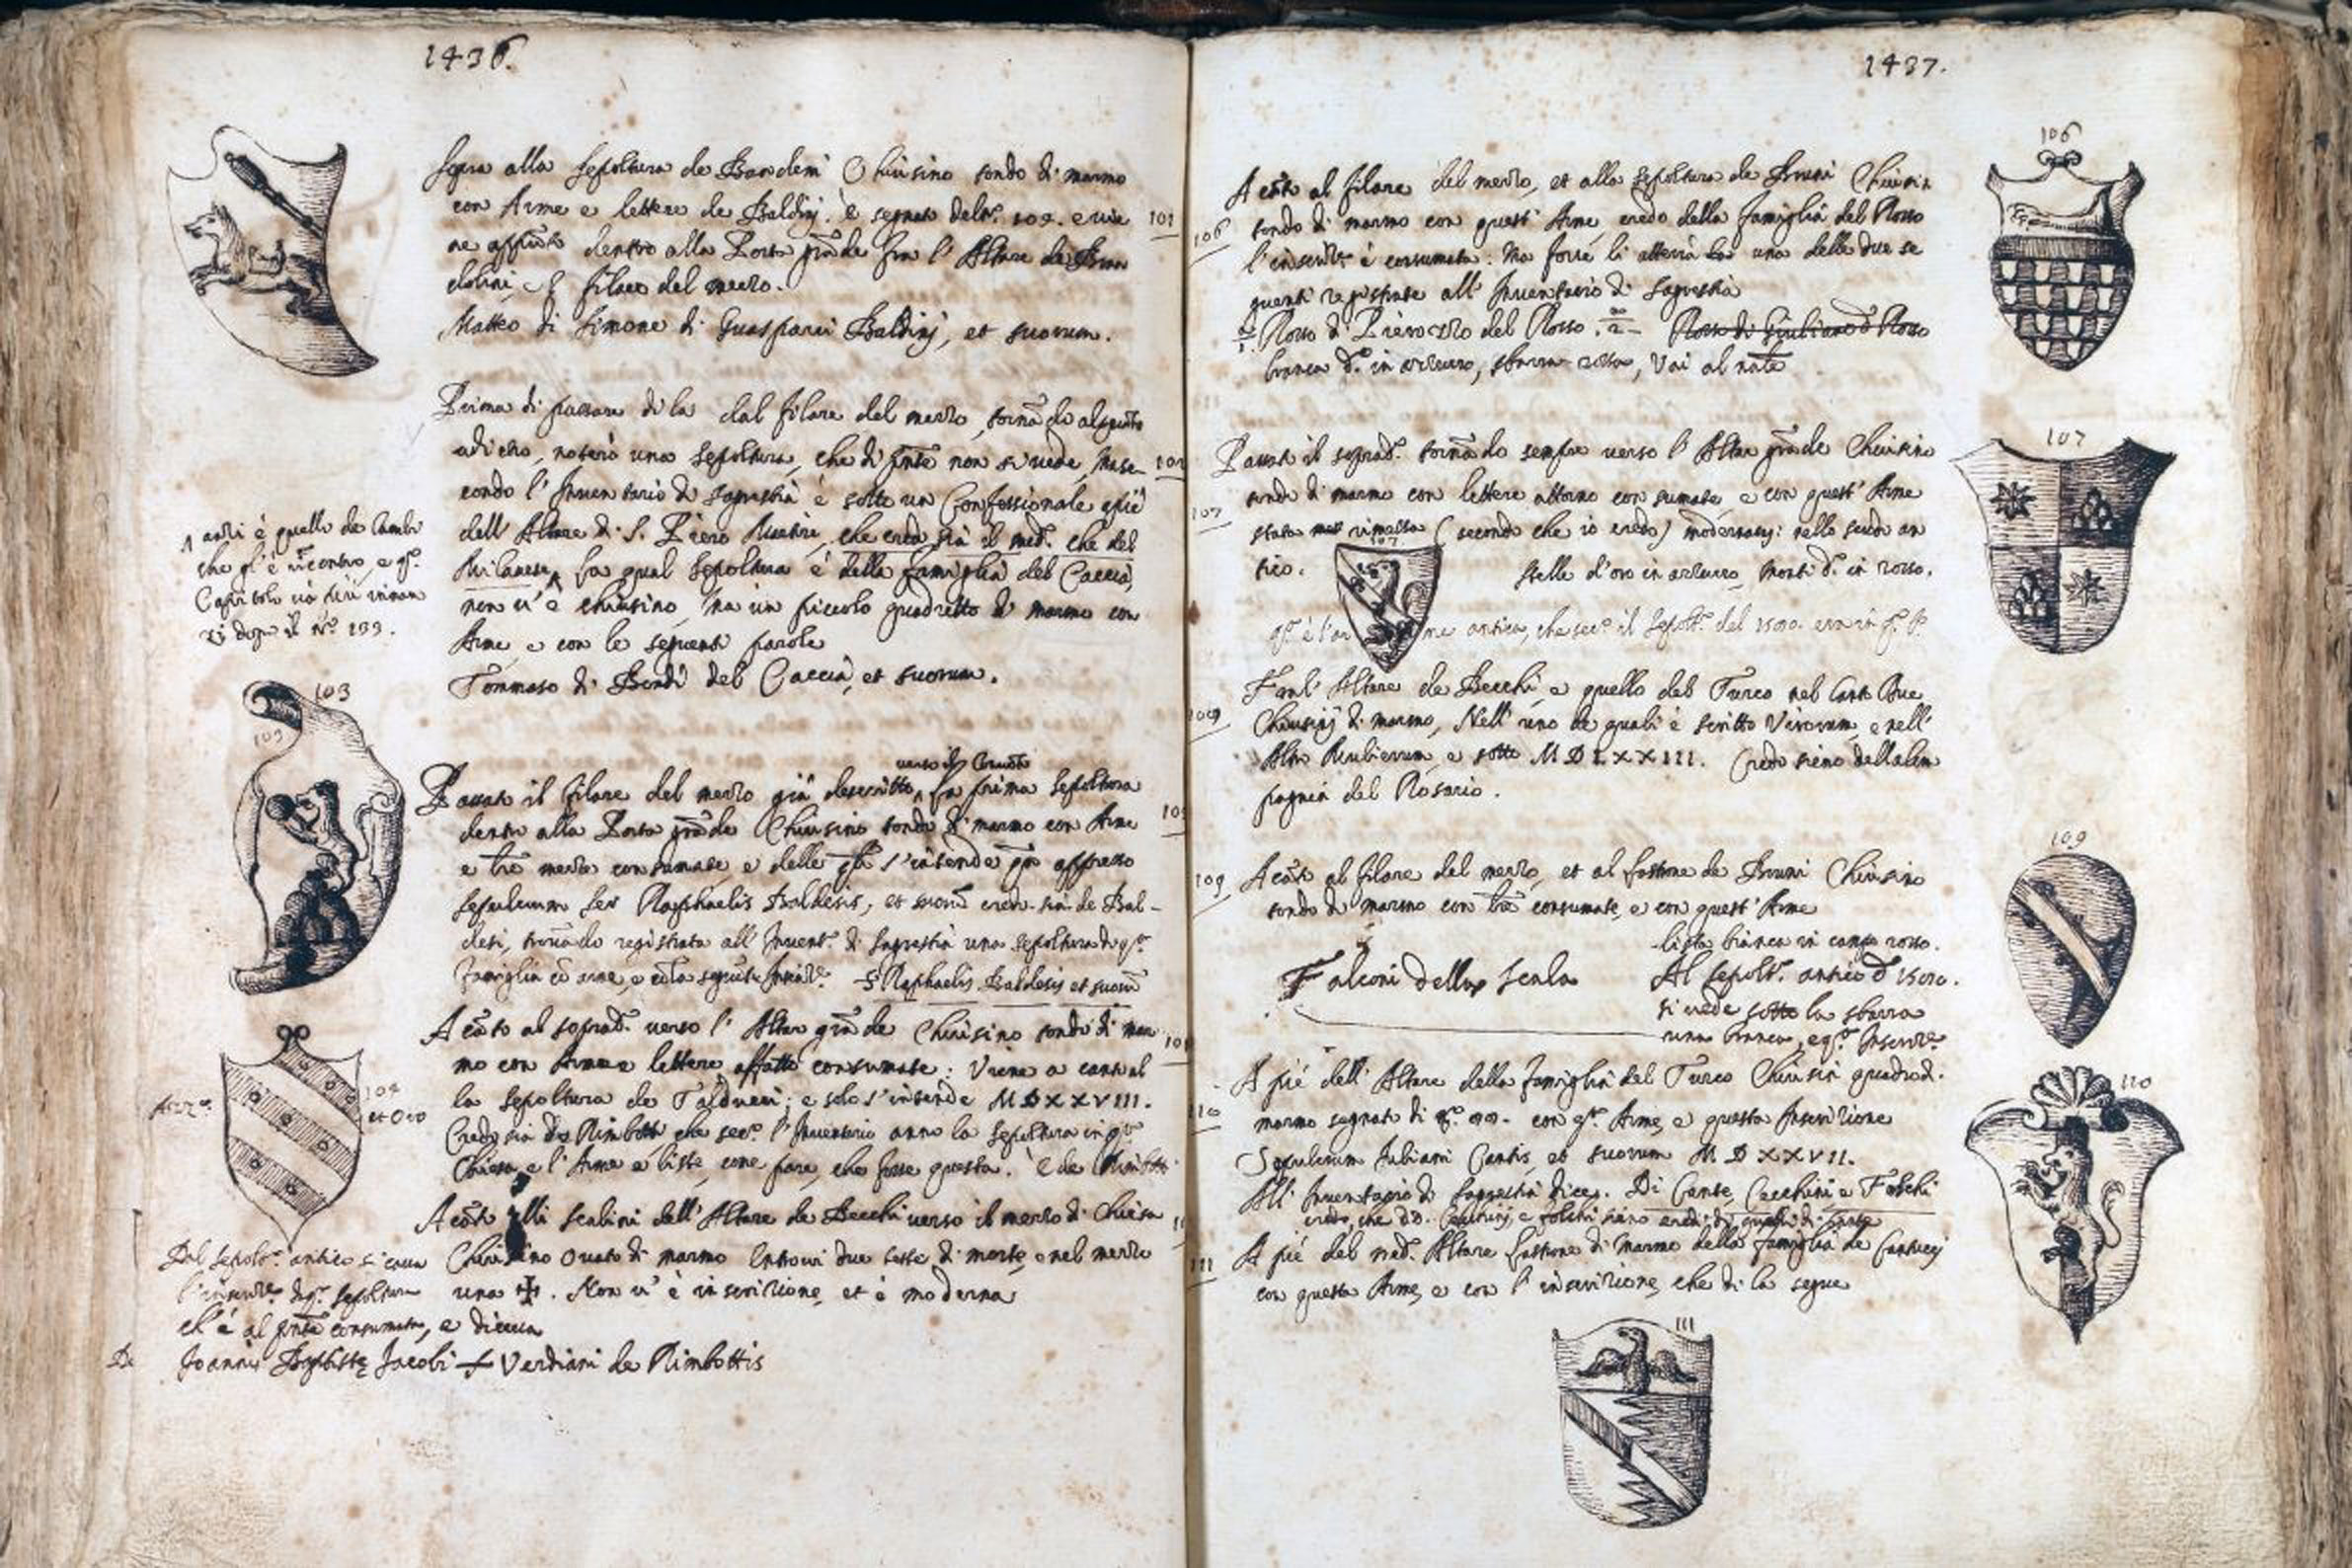 1436.
Sopra alla Sepoltura de Bandeni Chiusino tondo di marmo
con Arme e lettere de Baldinj. è segnato del 109. e vie
ne dentro alla Porta grāde fra l' Altare de
e l filare del mezzo.
Matteo di Simone di Guasparri Baldinj, et suorum.
101
Prima di passare di la dal filare del mezzo, tornādo alquāto
adietro, noterò una Sepoltura, che di pñte non si uede, ma se-
102
condo l' Inuentario di Sagrestia è sotto un Confessionale a piè
dell' Altare di S. Piero Martire, che credo sia il med. che del
Milanese, la qual Sepoltura è della famiglia del Caccia,
non u' è chiusino, ma un piccolo quadretto di marmo con
Arme, e con le seguenti parole
Tommaso di Bondì del Caccia, et suorum.
anzi è quello de Cambi
che gl' è rincontro, e q.
Capitolo uà più innan
zi dopo il N.º 133.
103
103
verso il
Passato il filare del mezzo già descritto, la prima Sepoltura
dentro alla Porta grāde Chiusino tondo di marmo con Arme
e lr̄e mezze consumate, e delle s'intende appresso
Sepulcrum Ser Raphaelis Baldesis, et suorū credo sia de Bal-
desi, trouādo registrata all' Inuent. di Sagrestia una sepoltura di q.
famiglia cō arme, e cō la seguēte S. Raphaelis Baldesis et suorū
A cāto al soprad. verso l' Altar grāde Chiusino tondo di mar
mo con Arme e lettere affatto consumate: Viene a canto al
la sepoltura de Falducci; e solo s'intende MDXXVIII.
Credo sia de Rimbotti che sec. l' Inuentario anno la sepoltura in q.
Chiesa, e l' Arme a liste, come pare, che fosse questa. È de Rimbotti
104
et Oro
A cāto alli scalini dell' Altare de Becchi uerso il mezzo di Chiesa
Chiusino ouato di marmo entroui due teste di morte, e nel mezzo
una ✝. Non u' è inscrizione, et è moderna
Dal Sepolt. antico si caua
l' inscriz. di q. sepoltura
ch' è al pñte consumata, e diceua
Joannis Baptistę Jacobi Verdiani de Rimbottis
1437.
106
A cāto al filare del mezzo, et alla Sepoltura de Bruni Chiusin
106
tondo di marmo con quest' Arme, credo della famiglia del Rosso
l' inscriz. è consumata: Ma forse li atterrà ha una delle due se
guenti registrate all' Inuentario di Sagrestia
Rosso di Piero del Rosso. Rosso di Giuliano d Rosso
branca d. in azzurro, sbarra rossa, Vai al nāle
107
Passato il soprad. tornādo sempre verso l' Altar grāde Chiusino
tondo di marmo con lettere attorno consumate, e con quest' Arme
107
stata rimessa (secondo che io credo) modernam: nello scudo an
tico.
107
Stelle d'oro in azzurro, monti d. in rosso.
q. è l'arme antica, che sec. il Sepolt. del 1500. era in q.
Fra l' Altare de Becchi, e quello del Turco nel Canto Due
Chiusinj di marmo, Nell' uno de quali è scritto Virorum, e nell'
Altro Mulierum, e sotto MDLXXIII. Credo sieno della Com
pagnia del Rosario.
109
A cāto al filare del mezzo, et al lastrone de Bruni Chiusino
109
tondo di marmo con lr̄e consumate, e con quest' Arme
lista bianca in campo rosso.
Falconi della Scala
Al Sepolt. antico d 1500.
si uede sotto la sbarra
una branca, e q. Inscriz.
A piè dell' Altare della famiglia del Turco Chiusin quadro d.
110
110
marmo segnato di con q. Arme, e questa Inscrizione
Sepulcrum Juliani Cantis, et suorum MDXXVII.
All' Inuentario di Sagrestia dice. Di Cante, Cecchini e Foschi
credo, che
A piè del med. Altare lastrone di Marmo della famiglia de Cantucci
111
con questa Arme, e con l' inscrizione, che di la segue
111